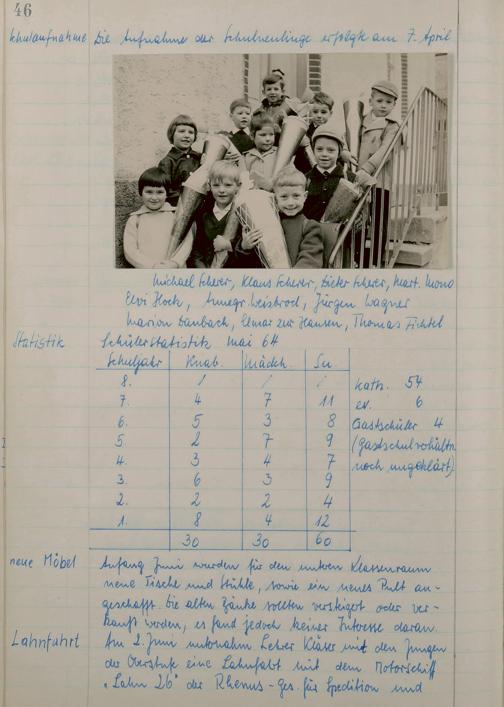 46
Schulaufnahme Die Aufnahme der Schulneulinge erfolgte am 7. April
Michael Scherer, Klaus Scherer, Dieter Scherer, Mart.
Elvi Hoch, Annegr. Weisbrod, Jürgen Wagner
Marion Danbach, Elmar zur Hausen, Thomas Fichtel
Statistik Schülerstatistik Mai 64
Schuljahr Knab. Mädch. Su.
8. / / / kath. 54
7. 4 7 11 ev. 6
6. 5 3 8 Gastschüler 4
5. 2 7 9 (Gastschulverhältn.
4. 3 4 7 noch ungeklärt)
3. 6 3 9
2. 2 2 4
1. 8 4 12
30 30 60
neue Möbel Anfang Juni wurden für den unteren Klassenraum
neue Tische und Stühle, sowie ein neues Pult an-
geschafft. Die alten Bänke sollten versteigert oder ver-
kauft werden, es fand jedoch keiner Interesse daran.
Lahnfahrt Am 2. Juni unternahm Lehrer Kläser mit den Jungen
der Oberstufe eine Lahnfahrt mit dem Motorschiff
"Lahn 26" der Rhenus-Ges. für Spedition und